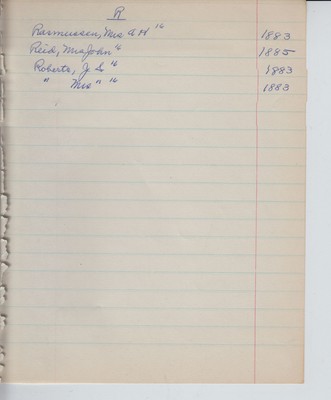 R
Rasmussen, Mrs A H " 1883
Reed, Mrs John " 1885
Roberts, J. S. " 1883
" Mrs " " 1883